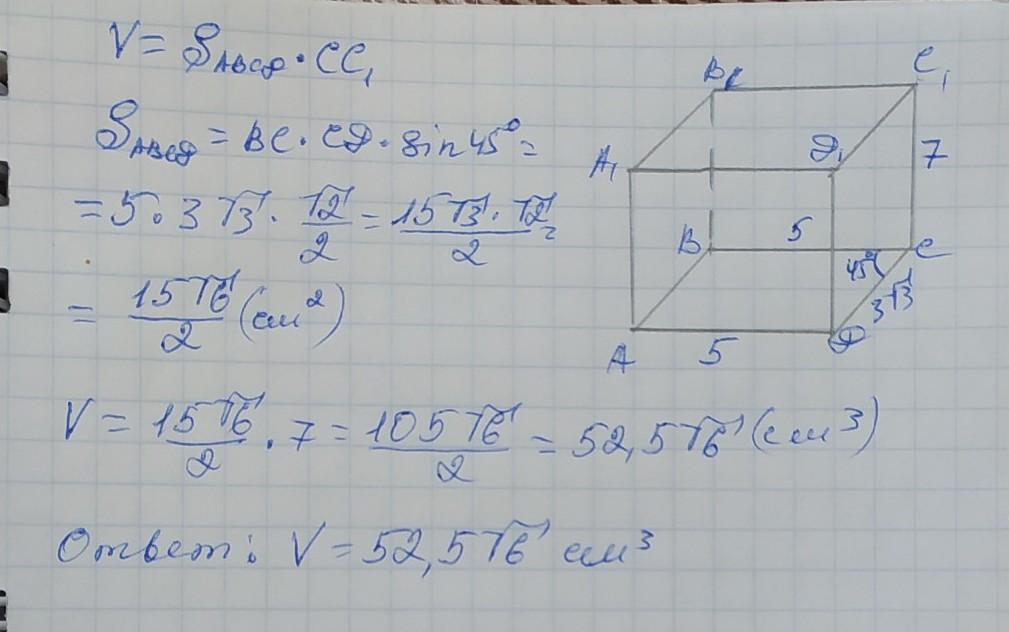 V = S_ABCD · CC₁
S_ABCD = BC · CD · sin 45° =
= 5 · 3√3 · √2/2 = 15√3 · √2/2 =
= 15√6/2 (см²)
V = 15√6/2 · 7 = 105√6/2 = 52,5√6 (см³)
Ответ: V = 52,5√6 см³
C₁
A₁
D₁
7
B
5
C
45°
3√3
A
5
D